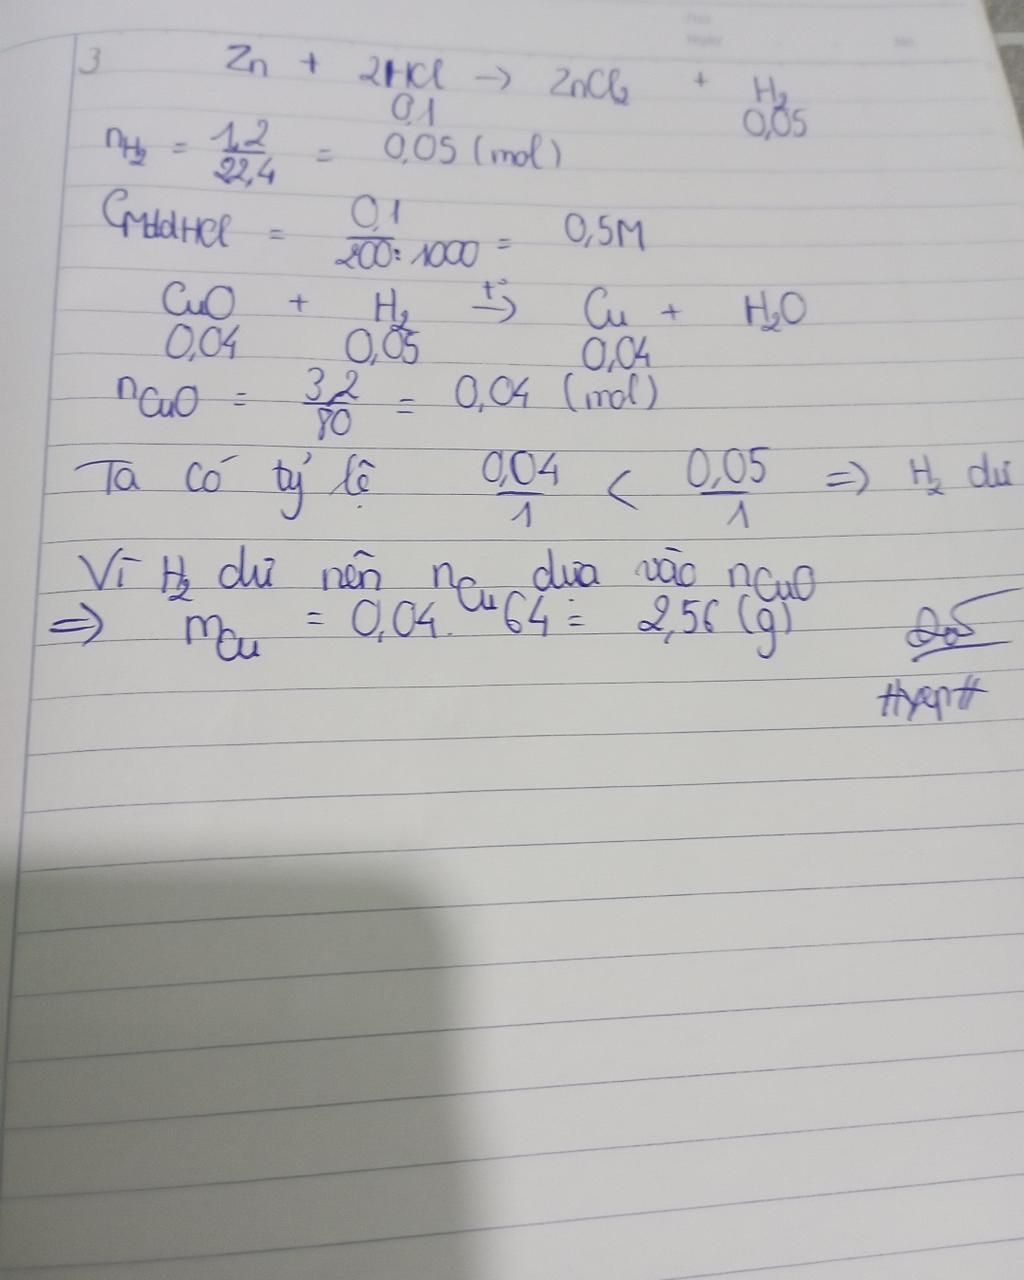 3 Zn + 2HCl → ZnCl₂ + H₂
0,1 0,05
nH₂ = 1,2/22,4 = 0,05 (mol)
CMddHCl = 0,1/200:1000 = 0,5M
CuO + H₂ t°→ Cu + H₂O
0,04 0,05 0,04
nCuO = 3,2/80 = 0,04 (mol)
Ta có tỷ lệ 0,04/1 < 0,05/1 => H₂ dư
Vì H₂ dư nên nCu dựa vào nCuO
=> mCu = 0,04.64 = 2,56 (g)